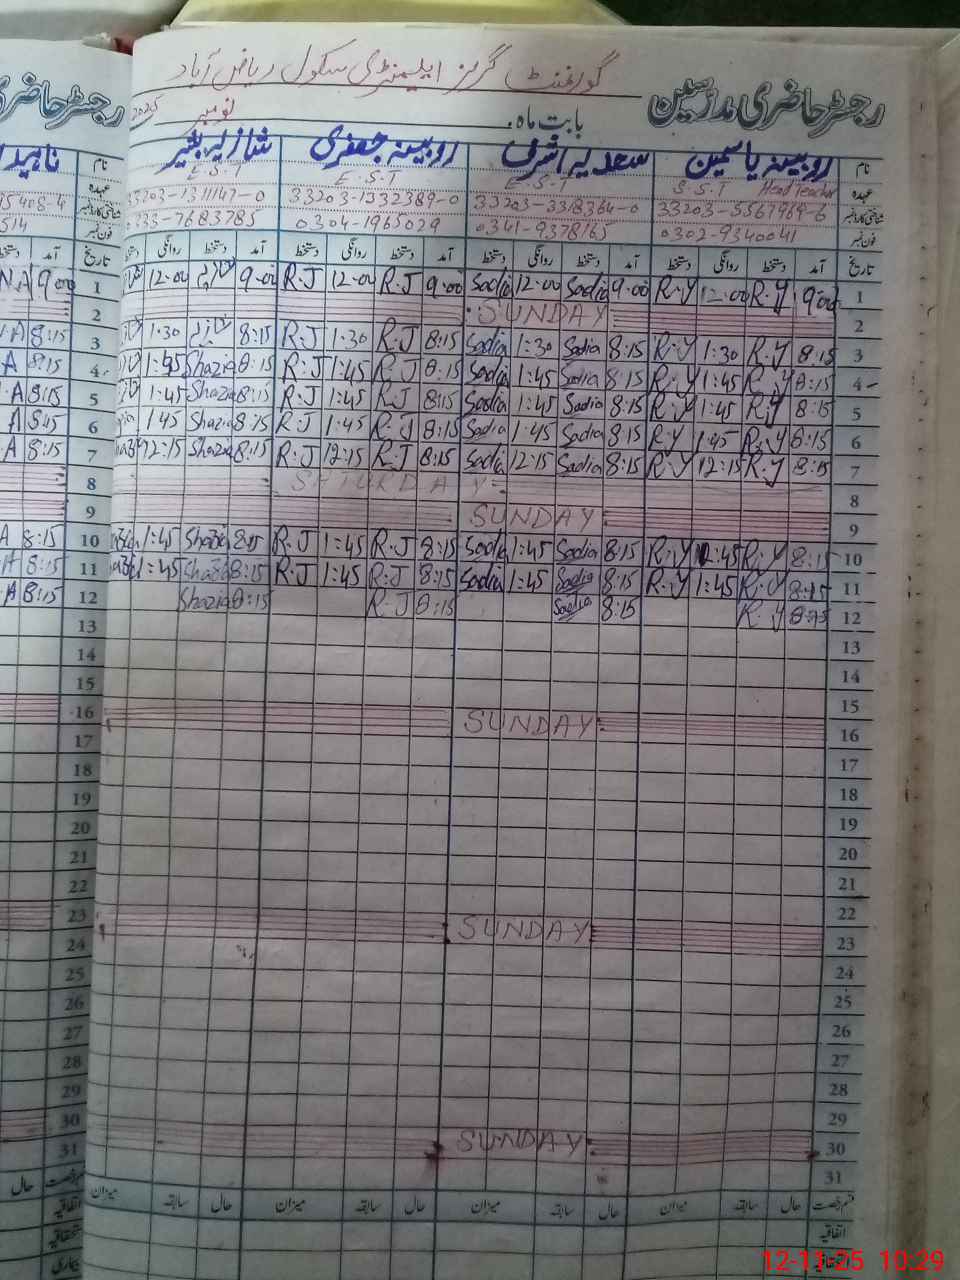 گورنمنٹ گرلز ایلیمنٹری سکول ریاض آباد
رجسٹر حاضری مدرسین
بابت ماہ نومبر 2025
نام روبینہ یاسمین سعدیہ اشرف روبینہ جعفری شازیہ بشیر
عہدہ S.S.T Head Teacher E.S.T E.S.T E.S.T
شناختی کارڈ نمبر 33203-5567969-6 33203-3318364-0 33203-1332389-0 33203-1311147-0
فون نمبر 0302-9340041 0341-9378165 0304-1965029 0333-7683785
تاریخ آمد دستخط روانگی دستخط آمد دستخط روانگی دستخط آمد دستخط روانگی دستخط آمد دستخط روانگی دستخط
1 9:00 R.Y 12:00 R.Y 9:00 Sadia 12:00 Sadia 9:00 R.J 12:00 R.J 9:00 شازیہ 12:00
2 SUNDAY
3 8:15 R.Y 1:30 R.Y 8:15 Sadia 1:30 Sadia 8:15 R.J 1:30 R.J 8:15 شازیہ 1:30
4 8:15 R.Y 1:45 R.Y 8:15 Sadia 1:45 Sadia 8:15 R.J 1:45 R.J 8:15 Shazia 1:45
5 8:15 R.Y 1:45 R.Y 8:15 Sadia 1:45 Sadia 8:15 R.J 1:45 R.J 8:15 Shazia 1:45
6 8:15 R.Y 1:45 R.Y 8:15 Sadia 1:45 Sadia 8:15 R.J 1:45 R.J 8:15 Shazia 1:45
7 8:15 R.Y 12:15 R.Y 8:15 Sadia 12:15 Sadia 8:15 R.J 12:15 R.J 8:15 Shazia 12:15
8 SATURDAY
9 SUNDAY
10 8:15 R.Y 1:45 R.Y 8:15 Sadia 1:45 Sadia 8:15 R.J 1:45 R.J 8:15 Shazia 1:45
11 8:15 R.Y 1:45 R.Y 8:15 Sadia 1:45 Sadia 8:15 R.J 1:45 R.J 8:15 Shazia 1:45
12 8:15 R.Y 8:15 Sadia 8:15 R.J 8:15 Shazia
13
14
15
16 SUNDAY
17
18
19
20
21
22
23 SUNDAY
24
25
26
27
28
29
30 SUNDAY
31
قسم رخصت حال سابقہ میزان حال سابقہ میزان حال سابقہ میزان حال سابقہ میزان
اتفاقیہ
استحقاقیہ
بیماری
12-11-25 10:29